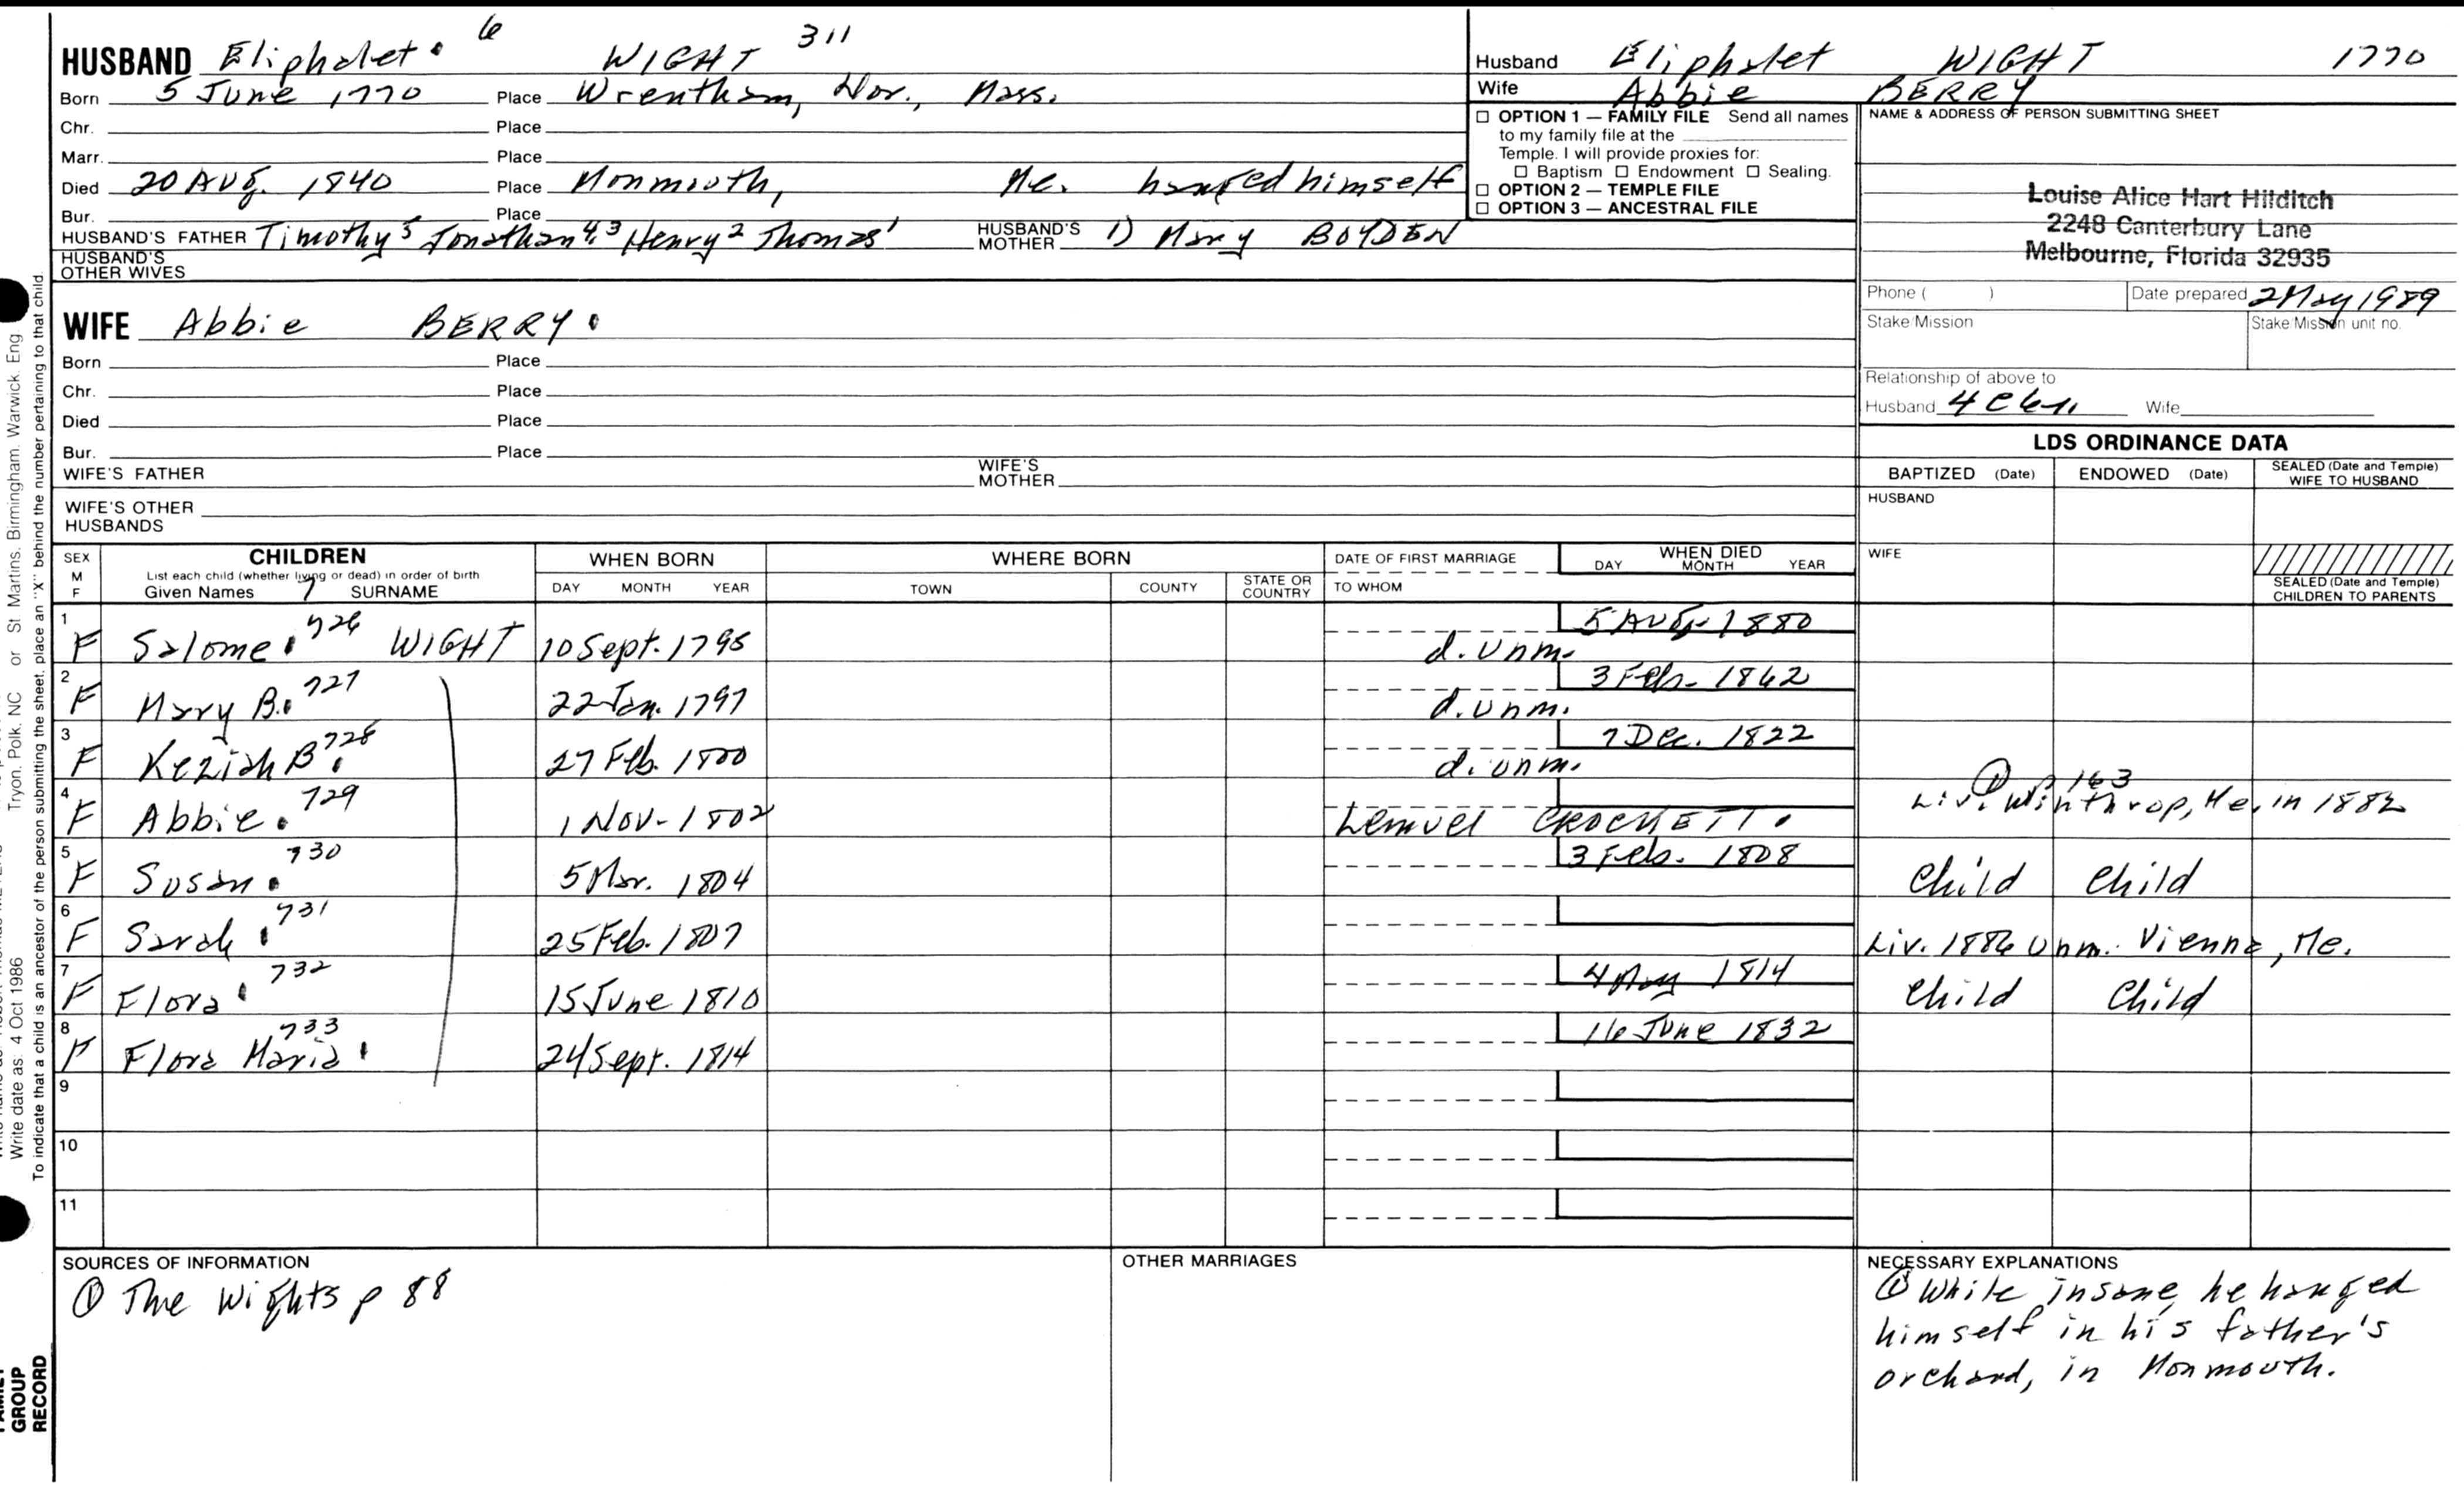 HUSBAND Eliphalet 6 WIGHT 311
Born 5 June 1770 Place Wrentham, Nor., Mass.
Chr. Place
Marr. Place
Died 20 Aug. 1840 Place Monmouth, Me. hanged himself
Bur. Place
HUSBAND'S FATHER Timothy 5 Jonathan 4,3 Henry 2 Thomas 1 HUSBAND'S MOTHER 1) Mary BOYDEN
HUSBAND'S OTHER WIVES
WIFE Abbie BERRY
Born Place
Chr. Place
Died Place
Bur. Place
WIFE'S FATHER WIFE'S MOTHER
WIFE'S OTHER HUSBANDS
Husband Eliphalet WIGHT 1770
Wife Abbie BERRY
☐ OPTION 1 — FAMILY FILE Send all names
to my family file at the
Temple. I will provide proxies for:
☐ Baptism ☐ Endowment ☐ Sealing.
☐ OPTION 2 — TEMPLE FILE
☐ OPTION 3 — ANCESTRAL FILE
NAME & ADDRESS OF PERSON SUBMITTING SHEET
Louise Alice Hart Hilditch
2248 Canterbury Lane
Melbourne, Florida 32935
Phone ( ) Date prepared 2 May 1989
Stake/Mission Stake/Mission unit no.
Relationship of above to
Husband Wife
LDS ORDINANCE DATA
BAPTIZED (Date) ENDOWED (Date) SEALED (Date and Temple) WIFE TO HUSBAND
HUSBAND
WIFE
SEALED (Date and Temple) CHILDREN TO PARENTS
SEX M F CHILDREN WHEN BORN WHERE BORN DATE OF FIRST MARRIAGE WHEN DIED
List each child (whether living or dead) in order of birth
Given Names 7 SURNAME DAY MONTH YEAR TOWN COUNTY STATE OR COUNTRY TO WHOM DAY MONTH YEAR
1 F Salome 726 WIGHT 10 Sept. 1795 d. unm. 5 Aug. 1880
2 F Mary B. 727 22 Jan. 1797 d. unm. 3 Feb. 1862
3 F Keziah B 728 27 Feb. 1800 d. unm. 7 Dec. 1822
4 F Abbie 729 1 Nov. 1802 Lemuel CROCKETT ① p 163 Liv. Winthrop, Me. in 1882
5 F Susan 730 5 Mar. 1804 3 Feb. 1808 Child Child
6 F Sarah 731 25 Feb. 1807 Liv. 1886 Unm. Vienna, Me.
7 F Flora 732 15 June 1810 4 May 1814 Child Child
8 F Flora Maria 733 24 Sept. 1814 16 June 1832
9
10
11
SOURCES OF INFORMATION
① The Wights p 88
OTHER MARRIAGES
NECESSARY EXPLANATIONS
① While insane he hanged
himself in his father's
orchard, in Monmouth.
To indicate that a child is an ancestor of the person submitting the sheet, place an "X" behind the number pertaining to that child
Tryon, Polk, NC or St Martins, Birmingham, Warwick, Eng
Write date as: 4 Oct 1986
GROUP
RECORD